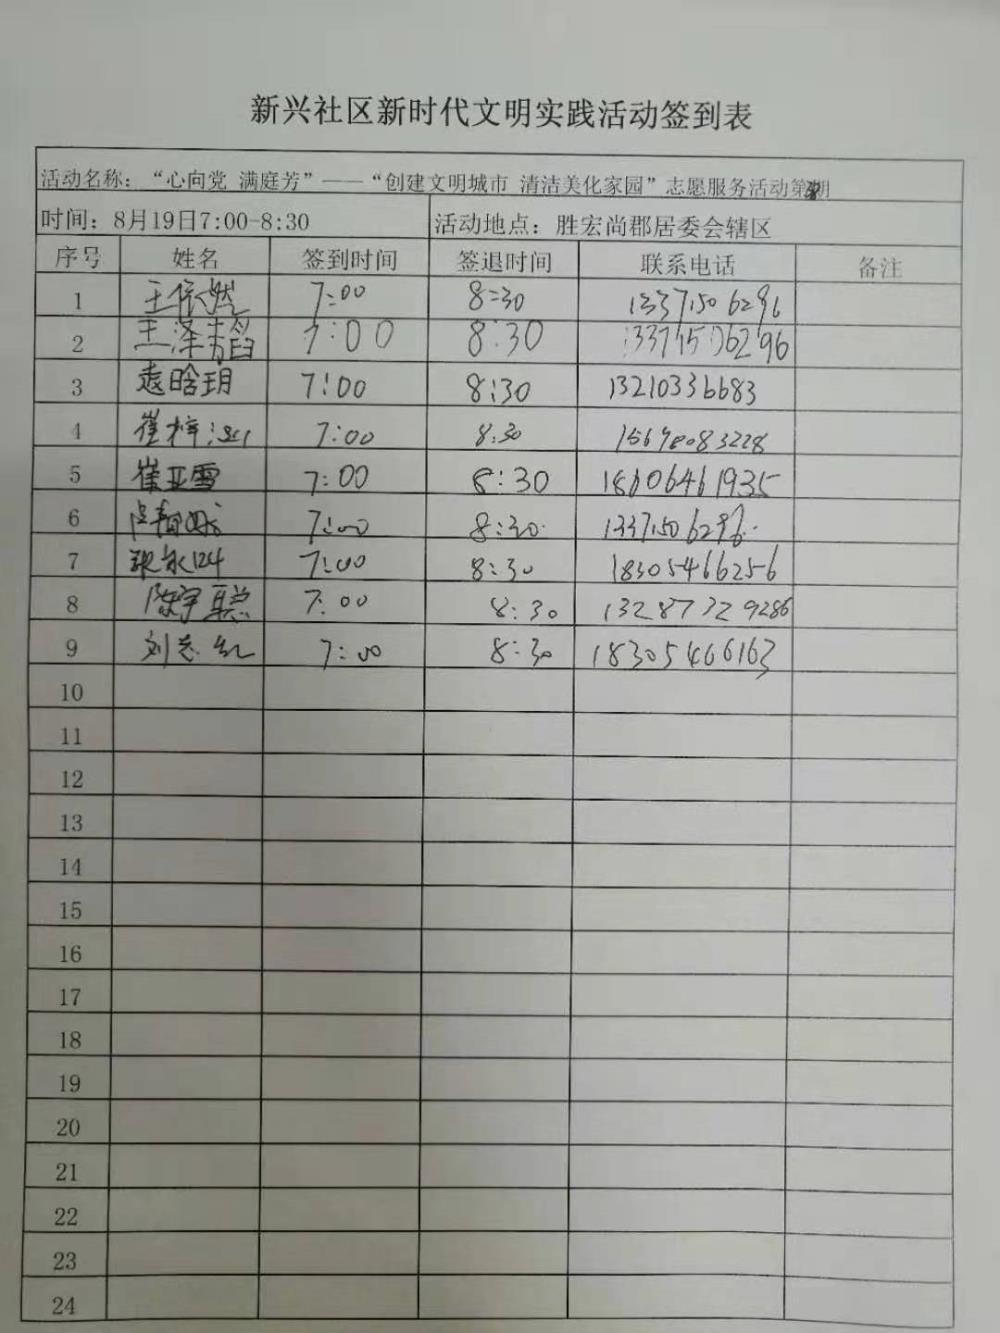 新兴社区新时代文明实践活动签到表
活动名称：“心向党 满庭芳”——“创建文明城市 清洁美化家园”志愿服务活动第期
时间：8月19日7:00-8:30 活动地点：胜宏尚郡居委会辖区
序号 姓名 签到时间 签退时间 联系电话 备注
1 王依然 7:00 8:30 13371506296
2 王泽韬 7:00 8:30 13371506296
3 袁晗玥 7:00 8:30 13210336683
4 崔梓 7:00 8:30 15698083228
5 崔亚雪 7:00 8:30 18606461935
6 7:00 8:30 13371506296
7 张 7:00 8:30 18305466256
8 陈宇聪 7:00 8:30 13287329286
9 刘志红 7:00 8:30 18305466163
10
11
12
13
14
15
16
17
18
19
20
21
22
23
24